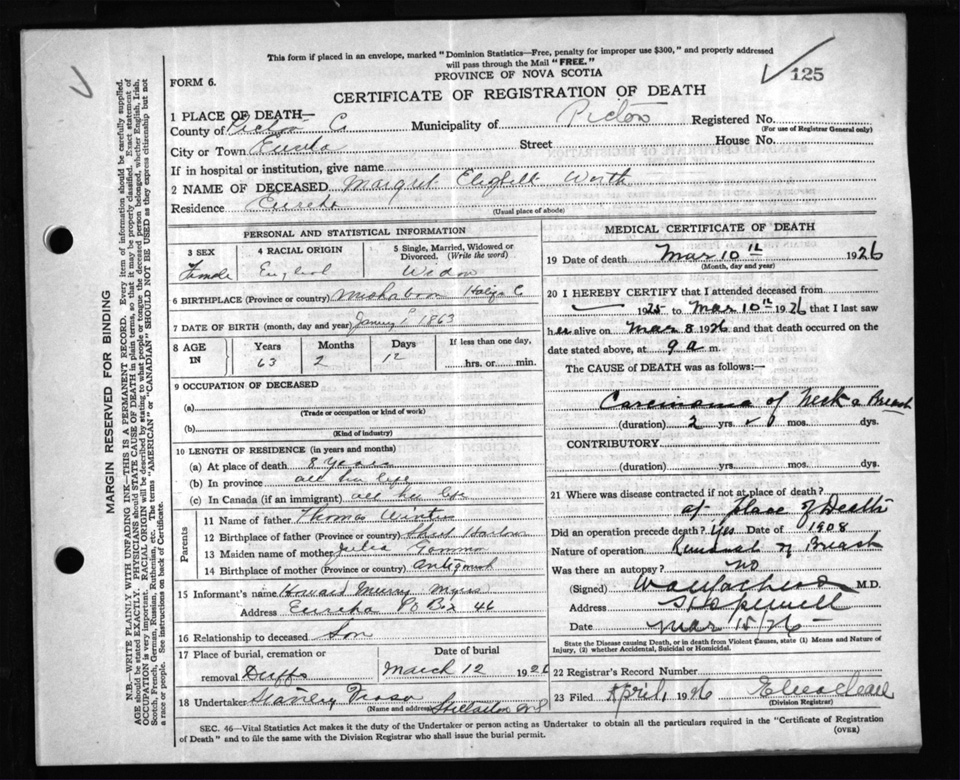 This form if placed in an envelope, marked "Dominion Statistics—Free, penalty for improper use $300," and properly addressed
will pass through the Mail "FREE."
PROVINCE OF NOVA SCOTIA
125
FORM 6.
CERTIFICATE OF REGISTRATION OF DEATH
1 PLACE OF DEATH—
County of Pictou C Municipality of Pictou Registered No.
(For use of Registrar General only)
City or Town Eureka Street House No.
If in hospital or institution, give name
2 NAME OF DECEASED Margret Worth
Residence Eureka
(Usual place of abode)
PERSONAL AND STATISTICAL INFORMATION
3 SEX 4 RACIAL ORIGIN 5 Single, Married, Widowed or
Divorced. (Write the word)
Female England Widow
6 BIRTHPLACE (Province or country) Halifax C
7 DATE OF BIRTH (month, day and year) 1863
8 AGE IN Years Months Days If less than one day,
63 2 12 hrs. or min.
9 OCCUPATION OF DECEASED
(a)
(Trade or occupation or kind of work)
(b)
(Kind of industry)
10 LENGTH OF RESIDENCE (in years and months)
(a) At place of death 8 Years
(b) In province all her life
(c) In Canada (if an immigrant) all her life
Parents
11 Name of father Thomas
12 Birthplace of father (Province or country) Harbor
13 Maiden name of mother Julia
14 Birthplace of mother (Province or country)
15 Informant's name Howard Murray Myers
Address Eureka PO Box 46
16 Relationship to deceased Son
17 Place of burial, cremation or Date of burial
removal Duffs March 12 1926
18 Undertaker Stanley Fraser
(Name and address) Stellarton N S
MEDICAL CERTIFICATE OF DEATH
19 Date of death Mar 10th 1926
(Month, day and year)
20 I HEREBY CERTIFY that I attended deceased from
1925 to Mar 10th 1926 that I last saw
her alive on Mar 8 1926 and that death occurred on the
date stated above, at 9 a m.
The CAUSE OF DEATH was as follows:—
Carcinoma of Neck & Breast
(duration) 2 yrs. mos. dys.
CONTRIBUTORY
(duration) yrs. mos. dys.
21 Where was disease contracted if not at place of death?
at place of Death
Did an operation precede death? Yes Date of 1908
Nature of operation Removal of Breast
Was there an autopsy? NO
(Signed) M.D.
Address
Date Mar 15/26
State the Disease causing Death, or in death from Violent Causes, state (1) Means and Nature of
Injury, (2) whether Accidental, Suicidal or Homicidal.
22 Registrar's Record Number
23 Filed April, 1926
(Division Registrar)
SEC. 46—Vital Statistics Act makes it the duty of the Undertaker or person acting as Undertaker to obtain all the particulars required in the "Certificate of Registration
of Death" and to file the same with the Division Registrar who shall issue the burial permit.
(OVER)
MARGIN RESERVED FOR BINDING
N.B.—WRITE PLAINLY WITH UNFADING INK—THIS IS A PERMANENT RECORD. Every item of information should be carefully supplied.
AGE should be stated EXACTLY. PHYSICIANS should STATE CAUSE OF DEATH in plain terms, so that it may be properly classified. Exact statement of
OCCUPATION is very important. RACIAL ORIGIN will be described by stating to what people or tongue the deceased person belonged, whether English, Irish,
Scotch, French, German, Russian, Ruthenian, etc. The terms "AMERICAN" or "CANADIAN" SHOULD NOT BE USED as they express citizenship but not
a race or people. See instructions on back of Certificate.